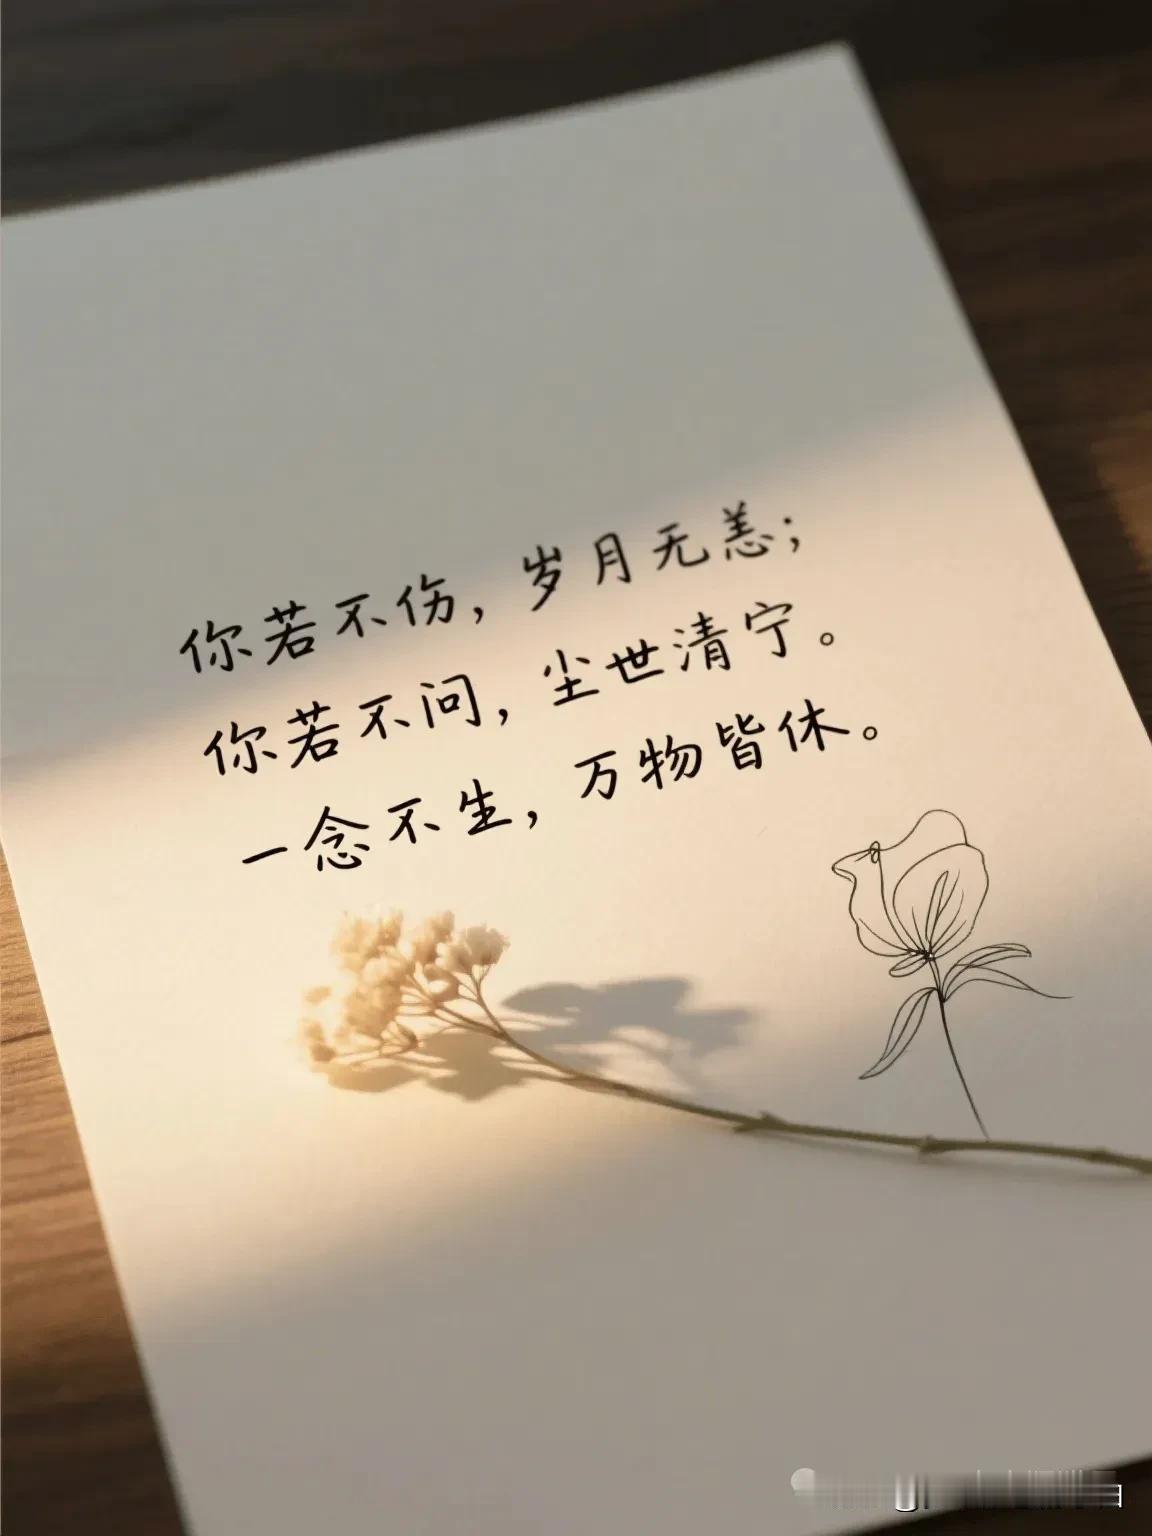 你若不伤，岁月无恙；
你若不问，尘世清宁。
一念不生，万物皆休。